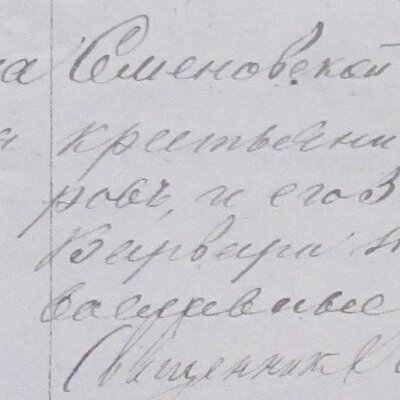 на Семеновской
крестьяни
ровъ, и его З
Варвара
вославные
Священникъ